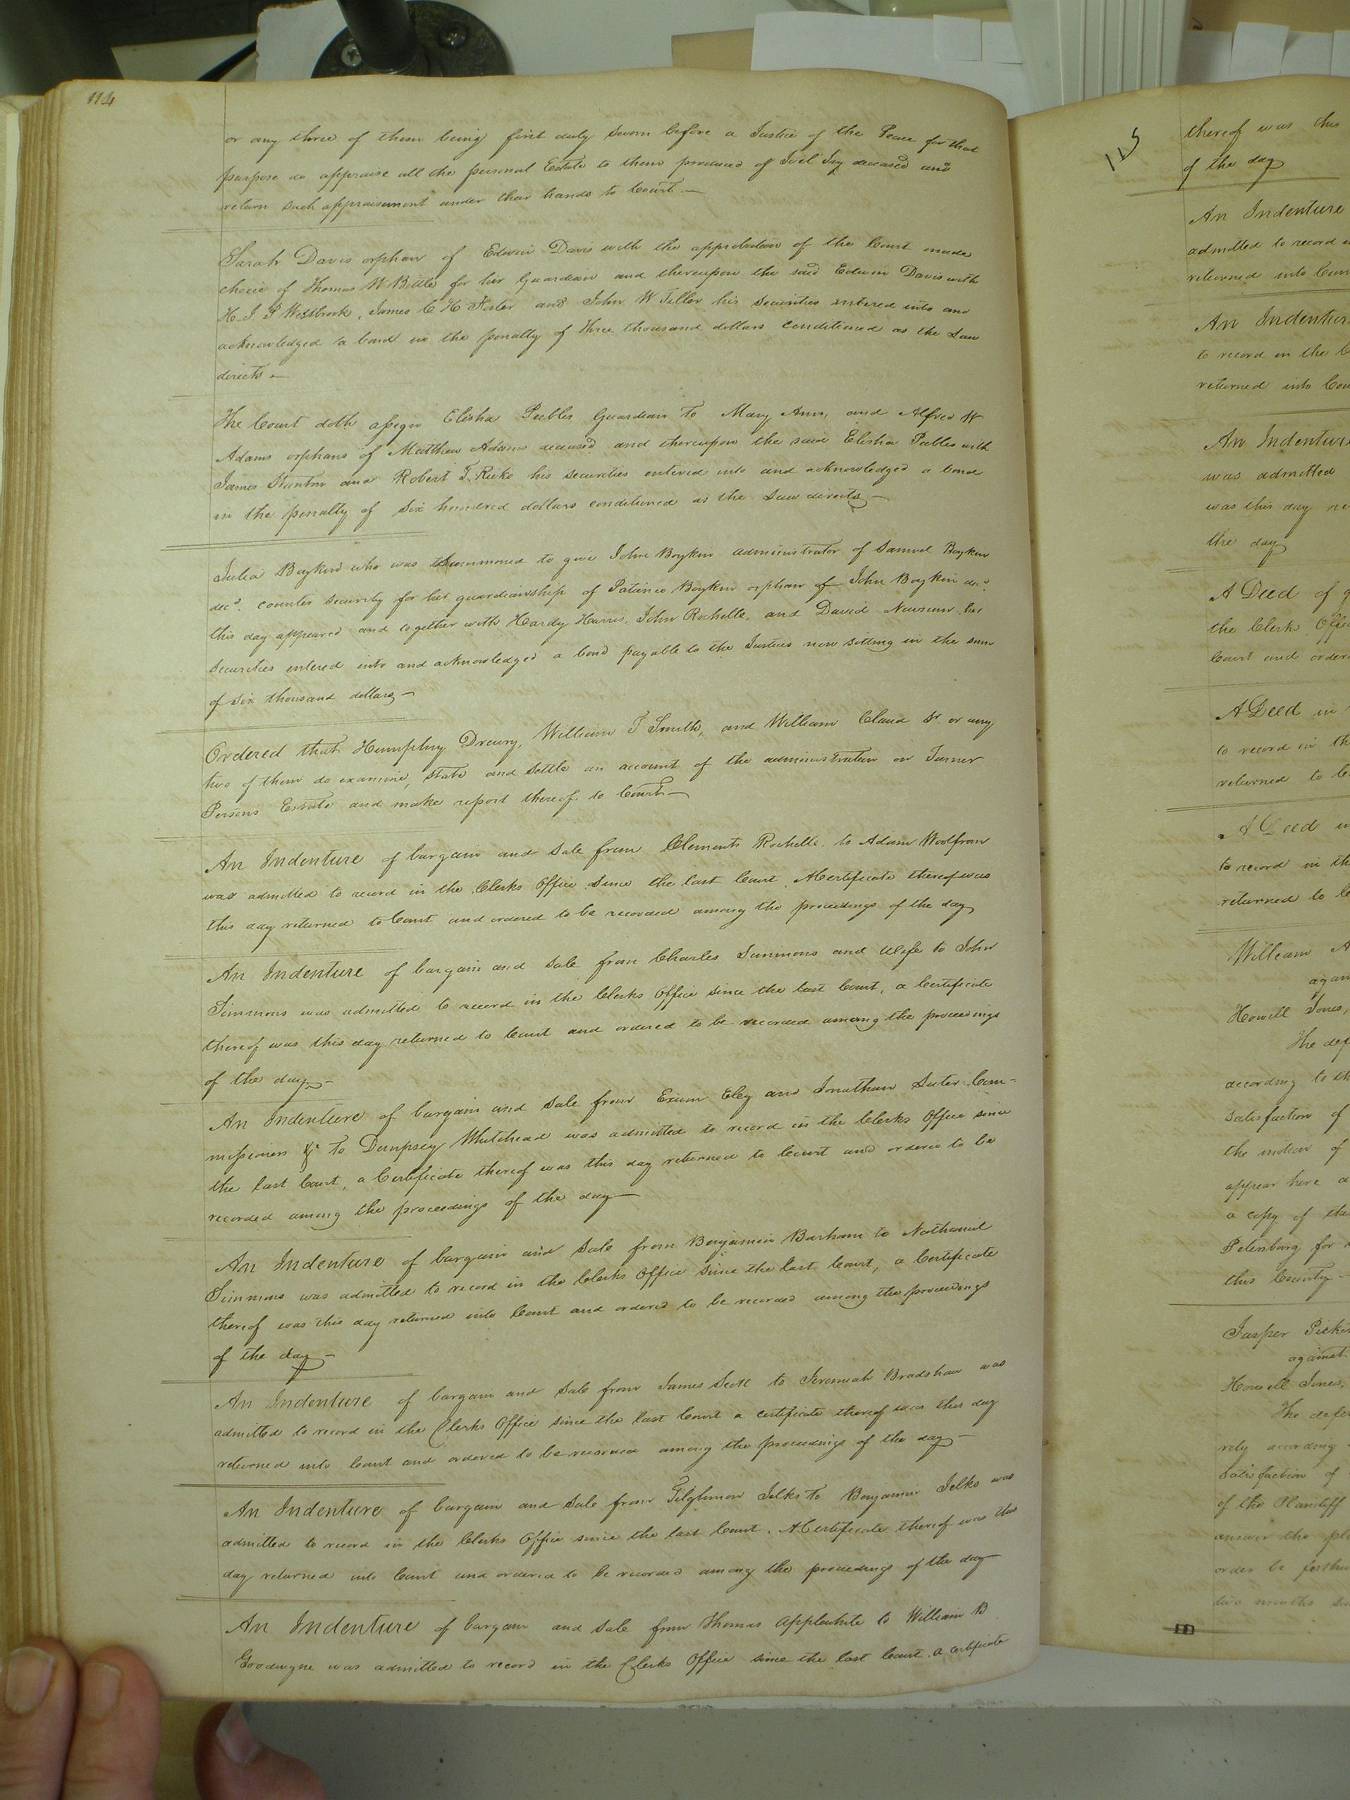 114
or any three of them being first duly sworn before a Justice of the Peace for that
purpose do appraise all the personal Estate to them produced of Joel Ivy deceased and
return such appraisement under their hands to Court
Sarah Davis orphan of Edwin Davis with the approbation of the Court made
choice of Thomas W Bittle for her Guardian and thereupon the said Edwin Davis with
H. J. P Westbrook, James C H Foster and John W Teller his securities entered into and
acknowledged a bond in the penalty of three thousand dollars conditioned as the Law
directs
The Court doth assign Elisha Peebles Guardian to Mary Ann, and Alfred W
Adams orphans of Matthew Adams deceased and thereupon the said Elisha Peebles with
James Stanton and Robert T. Ricks his securities entered into and acknowledged a bond
in the penalty of six hundred dollars conditioned as the Law directs
Julia Boykin who was summoned to give John Boykin administrator of Samuel Boykin
decd. counter security for her guardianship of Patience Boykin orphan of John Boykin decd.
this day appeared and together with Hardy Harris, John Rochelle, and David Newsum her
securities entered into and acknowledged a bond payable to the Justices now sitting in the sum
of six thousand dollars
Ordered that Humphrey Drewry, William T Smith, and William Claud Sr. or any
two of them do examine, state and settle an account of the administration on Turner
Persons Estate and make report thereof to Court
An Indenture of bargain and sale from Clements Rochelle to Adam Woolfron
was admitted to record in the Clerks Office since the last Court. A Certificate thereof was
this day returned to Court and ordered to be recorded among the proceedings of the day
An Indenture of bargain and sale from Charles Simmons and Wife to John
Simmons was admitted to record in the Clerks Office since the last Court, a Certificate
thereof was this day returned to Court and ordered to be recorded among the proceedings
of the day
An Indenture of bargain and sale from Exum Eley and Jonathan Suter Com-
missioners &c to Dempsey Whitehead was admitted to record in the Clerks Office since
the last Court, a Certificate thereof was this day returned to Court and ordered to be
recorded among the proceedings of the day
An Indenture of bargain and sale from Benjamin Barham to Nathaniel
Simmons was admitted to record in the Clerks Office since the last Court, a Certificate
thereof was this day returned into Court and ordered to be recorded among the proceedings
of the day
An Indenture of bargain and sale from James Scott to Jeremiah Bradshaw was
admitted to record in the Clerks Office since the last Court a certificate thereof was this day
returned into Court and ordered to be recorded among the proceedings of the day
An Indenture of bargain and sale from Tilghmon Jelks to Benjamin Jelks was
admitted to record in the Clerks Office since the last Court. A Certificate thereof was this
day returned into Court and ordered to be recorded among the proceedings of the day
An Indenture of bargain and sale from Thomas Applewhite to William B
Goodwyne was admitted to record in the Clerks Office since the last Court. a certificate
115
thereof was this
of the day
An Indenture
admitted to record
returned into
An Indenture
to record in the
returned into
An Indenture
was admitted
was this day
the day
A Deed of
the Clerks
Court and
A Deed in
to record in
returned to
A Deed
to record in
returned to
William
Howell Jones,
The
according to
satisfaction of
the motion of
appear here
a copy of
Petersburg for
this County
Jasper
against
Howell Jones,
The
rely according
satisfaction of
of the Plaintiff
answer the
order be
two months